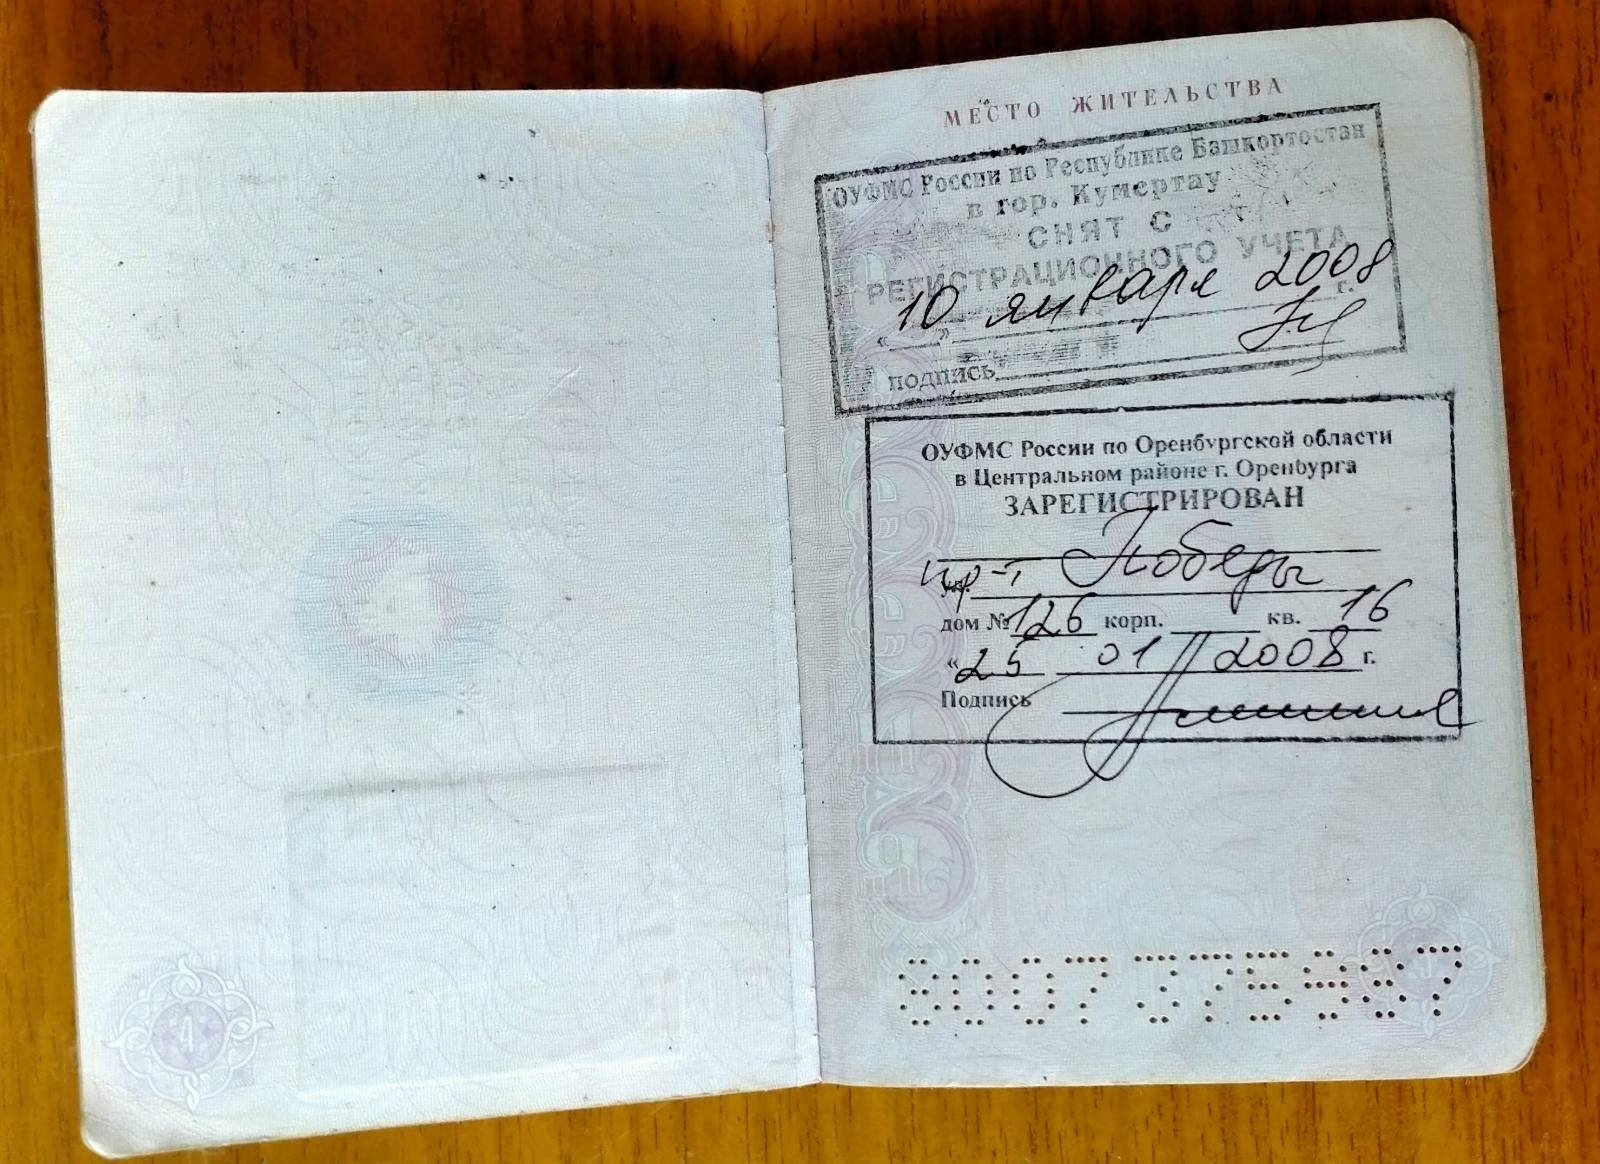 МЕСТО ЖИТЕЛЬСТВА
ОУФМС России по Республике Башкортостан
в гор. Кумертау
СНЯТ С
РЕГИСТРАЦИОННОГО УЧЕТА
«10» января 2008 г.
подпись
ОУФМС России по Оренбургской области
в Центральном районе г. Оренбурга
ЗАРЕГИСТРИРОВАН
пр-т Победы
дом № 126 корп. кв. 16
«25 01 2008 г.
Подпись
4
8007 375967